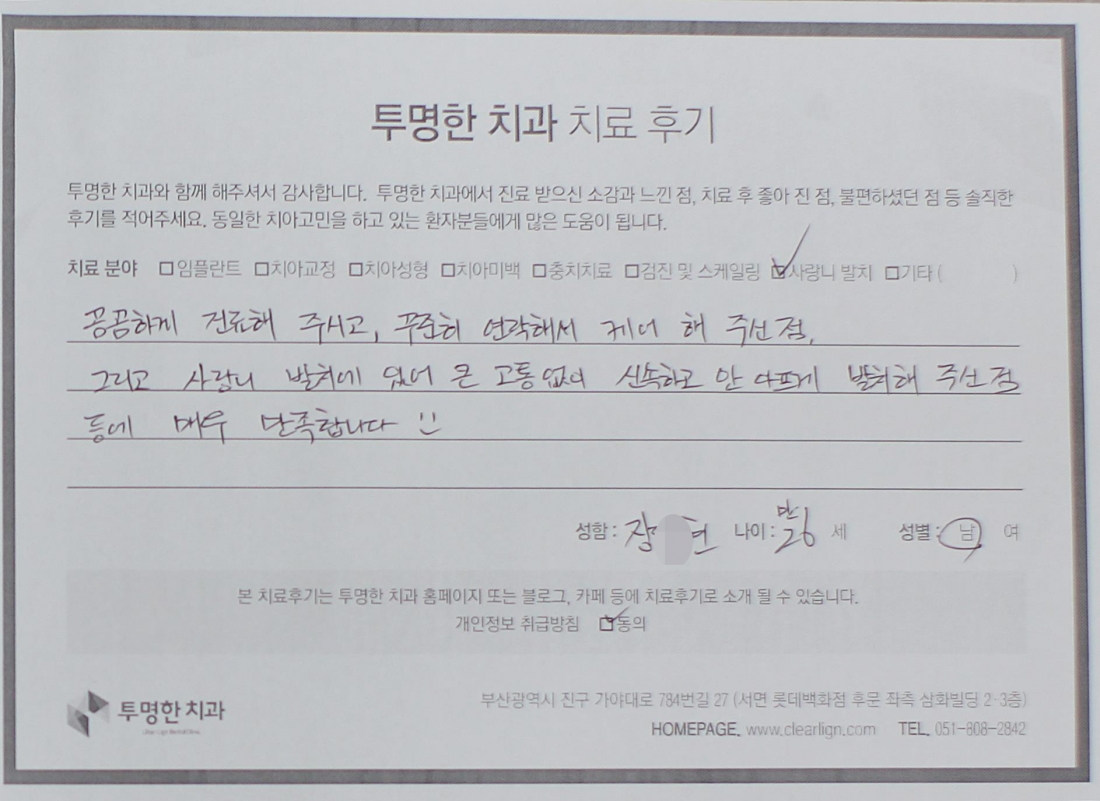 투명한 치과 치료 후기
투명한 치과와 함께 해주셔서 감사합니다. 투명한 치과에서 진료 받으신 소감과 느낀 점, 치료 후 좋아 진 점, 불편하셨던 점 등 솔직한
후기를 적어주세요. 동일한 치아고민을 하고 있는 환자분들에게 많은 도움이 됩니다.
치료 분야 □임플란트 □치아교정 □치아성형 □치아미백 □충치치료 □검진 및 스케일링 ☑사랑니 발치 □기타 ( )
꼼꼼하게 진료해 주시고, 꾸준히 연락해서 케어 해 주신 점,
그리고 사랑니 발치에 있어 큰 고통 없이 신속하고 안 아프게 발치해 주신 점
등에 매우 만족합니다 :)
성함 : 장 현 나이 : 만 26 세 성별 : 남 여
본 치료후기는 투명한 치과 홈페이지 또는 블로그, 카페 등에 치료후기로 소개 될 수 있습니다.
개인정보 취급방침 ☑동의
투명한 치과
부산광역시 진구 가야대로 784번길 27 (서면 롯데백화점 후문 좌측 삼화빌딩 2-3층)
HOMEPAGE. www.clearlign.com TEL. 051-808-2842